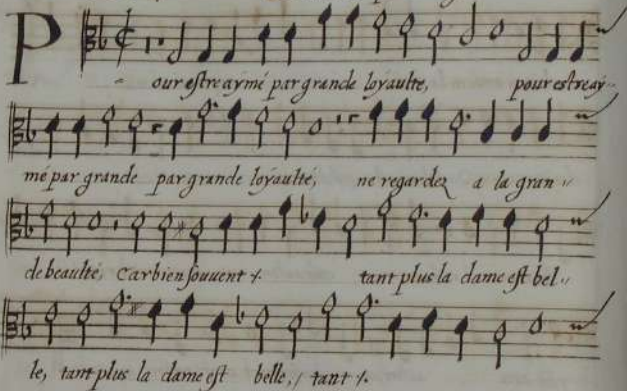 Pour estre aymé par grande loyaulté, pour estre ay-
mé par grande par grande loyaulté, ne regardez a la gran-
de beaulté, Car bien souvent ·/. tant plus la dame est bel-
le, tant plus la dame est belle, tant ·/.